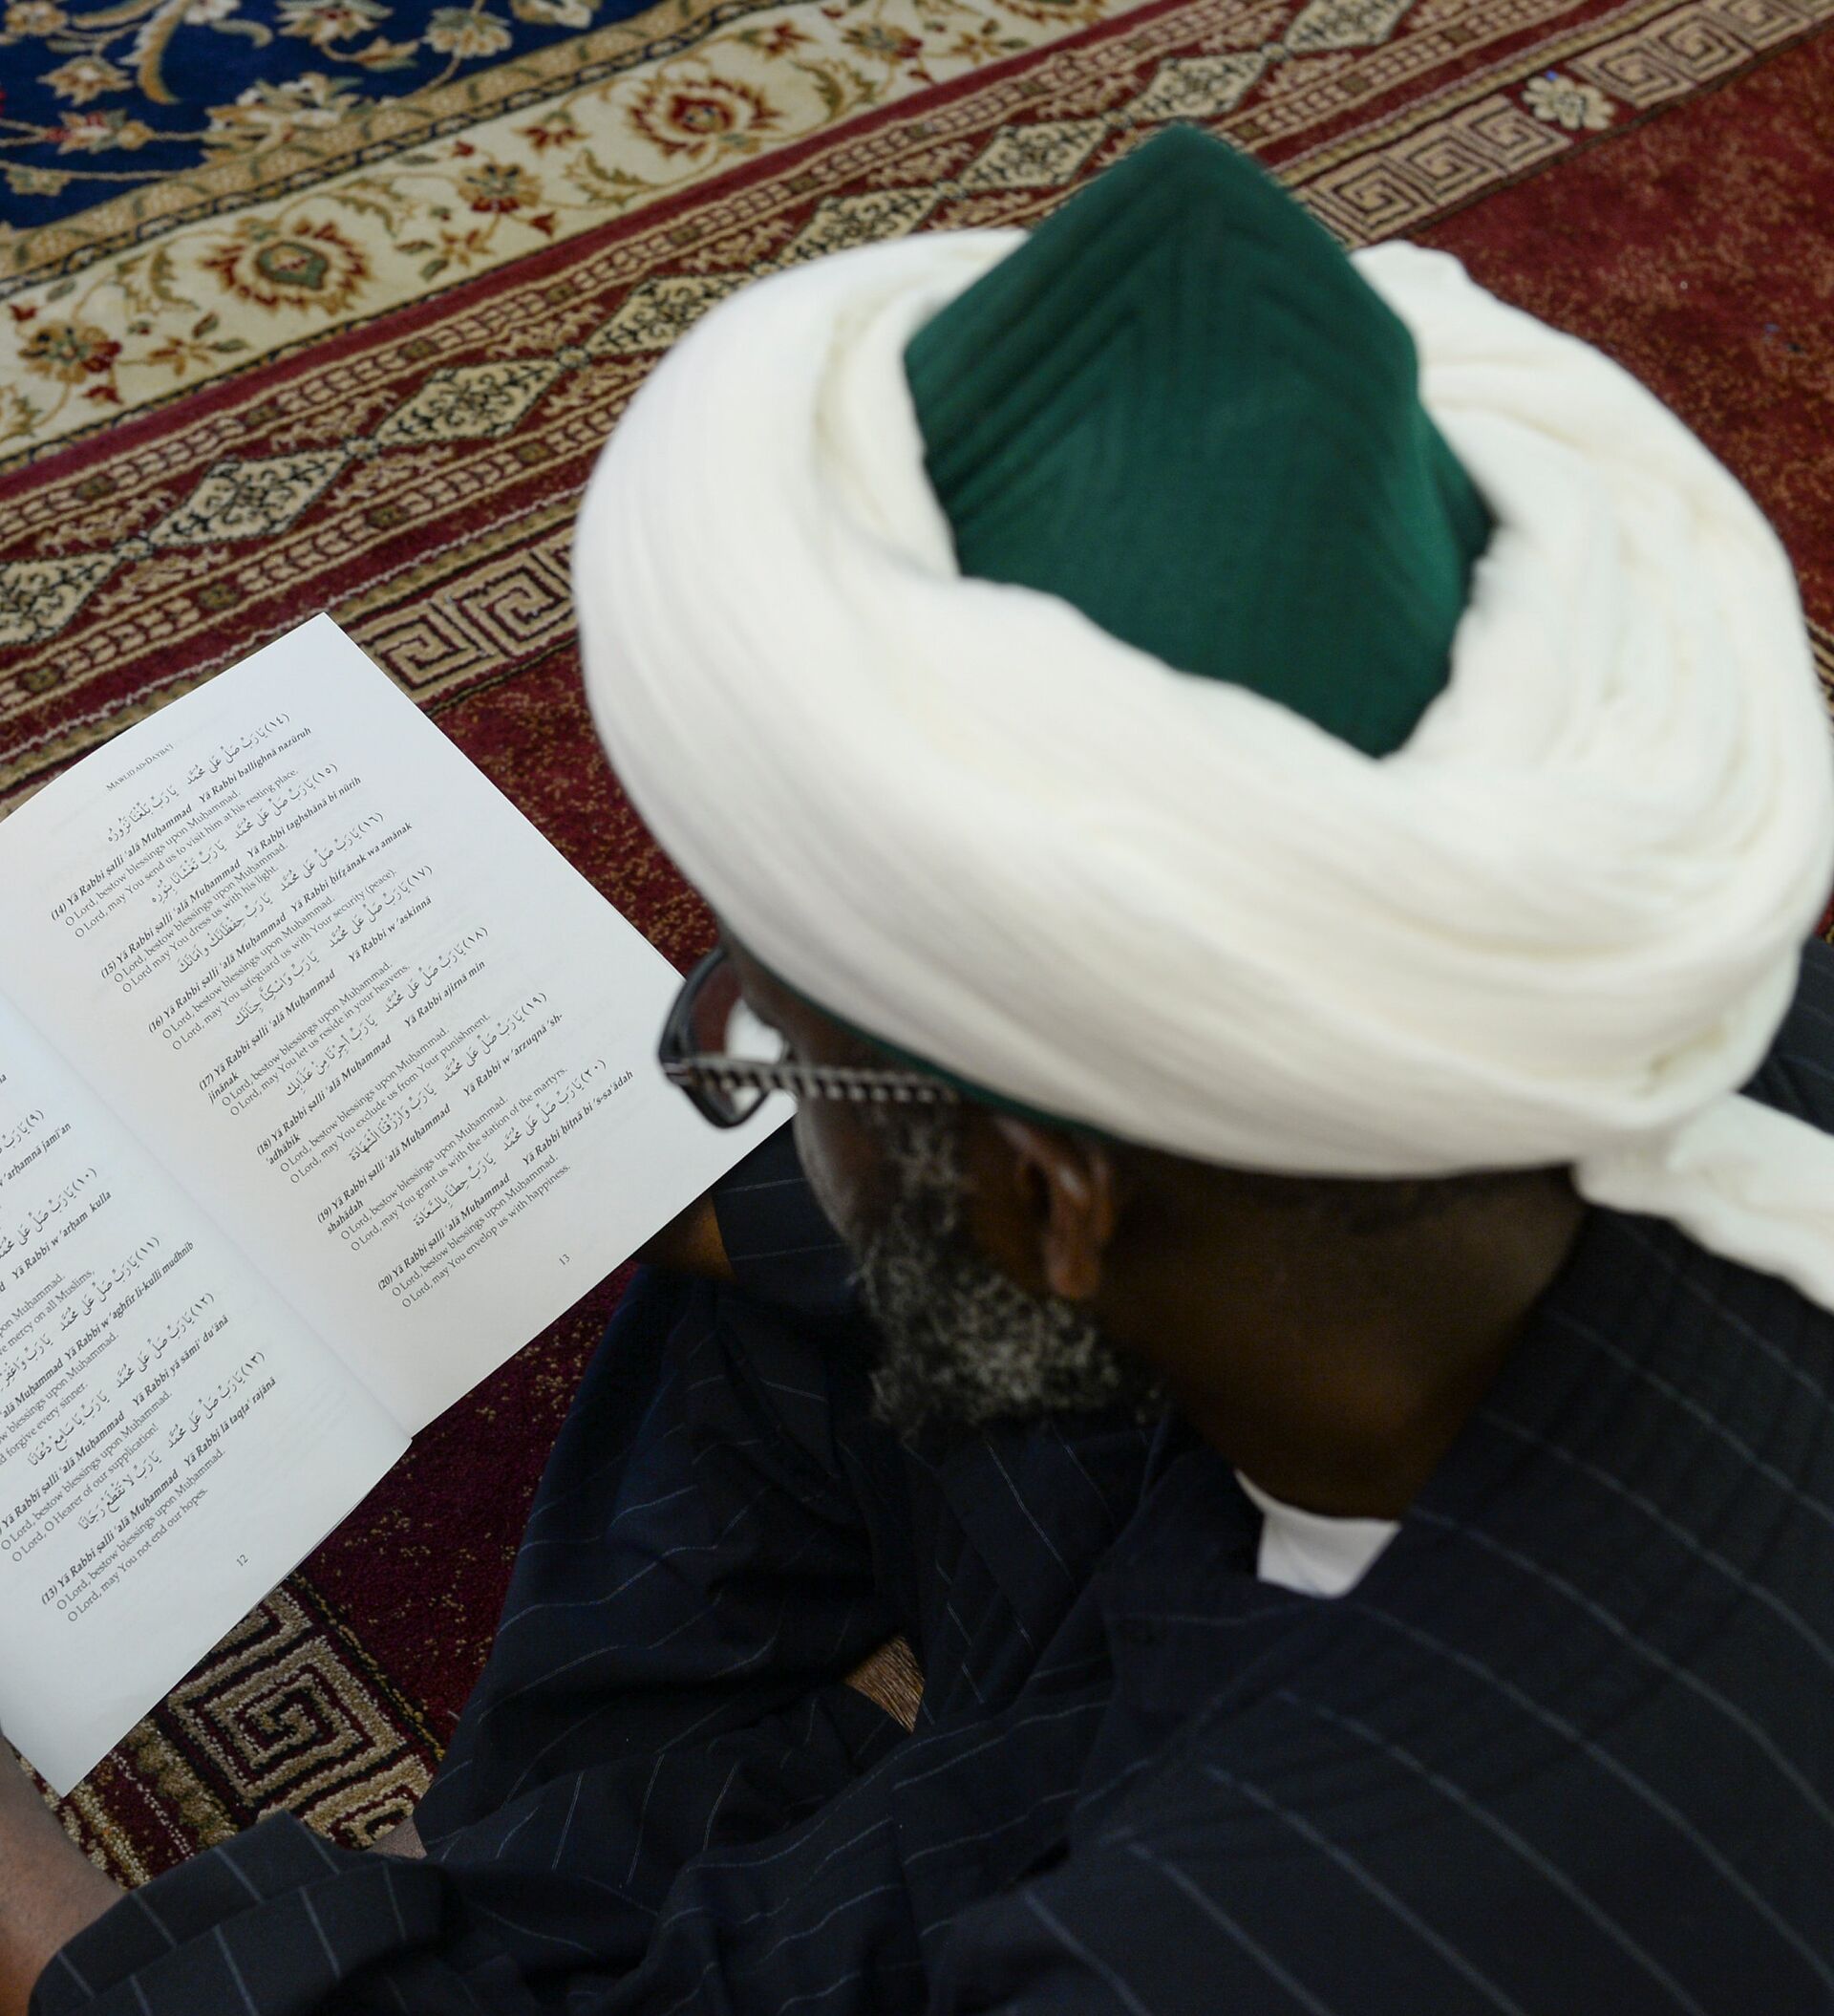 (٩)
w 'arḥamnā jamī'an
(١٠) يَا رَبْ صَلِّ عَلَى مُحَمَّد
Yā Rabbi w 'arḥam kulla
upon Muḥammad.
mercy on all Muslims.
(١١) يَا رَبْ صَلِّ عَلَى مُحَمَّد
'alā Muḥammad Yā Rabbi w 'aghfir li-kulli mudhnib
blessings upon Muḥammad.
forgive every sinner.
(١٢) يَا رَبْ صَلِّ عَلَى مُحَمَّد يَا رَبْ يَا سَامِعْ دُعَانَا
Yā Rabbi ṣalli 'alā Muḥammad Yā Rabbi yā sāmi' du'ānā
O Lord, bestow blessings upon Muḥammad.
O Lord, O Hearer of our supplication!
(١٣) يَا رَبْ صَلِّ عَلَى مُحَمَّد يَا رَبْ لَا تَقْطَعْ رَجَانَا
(13) Yā Rabbi ṣalli 'alā Muḥammad Yā Rabbi lā taqṭa' rajānā
O Lord, bestow blessings upon Muḥammad.
O Lord, may You not end our hopes.
12
MAWLID AD-DAYBA'I
(١٤) يَا رَبْ صَلِّ عَلَى مُحَمَّد يَا رَبْ بَلِّغْنَا نَزُورُه
(14) Yā Rabbi ṣalli 'alā Muḥammad Yā Rabbi ballighnā nazūruh
O Lord, bestow blessings upon Muḥammad.
O Lord, may You send us to visit him at his resting place.
(١٥) يَا رَبْ صَلِّ عَلَى مُحَمَّد يَا رَبْ تَغْشَانَا بِنُوْرِه
(15) Yā Rabbi ṣalli 'alā Muḥammad Yā Rabbi taghshānā bi nūrih
O Lord, bestow blessings upon Muḥammad.
O Lord may You dress us with his light.
(١٦) يَا رَبْ صَلِّ عَلَى مُحَمَّد يَا رَبْ حِفْظَانَكْ وَامَانَكْ
(16) Yā Rabbi ṣalli 'alā Muḥammad Yā Rabbi ḥifẓānak wa amānak
O Lord, bestow blessings upon Muḥammad.
O Lord, may You safeguard us with Your security (peace).
(١٧) يَا رَبْ صَلِّ عَلَى مُحَمَّد يَا رَبْ وَاسْكِنَّا جِنَانَكْ
(17) Yā Rabbi ṣalli 'alā Muḥammad Yā Rabbi w 'askinnā
jinānak
O Lord, bestow blessings upon Muḥammad.
O Lord, may You let us reside in your heavens.
(١٨) يَا رَبْ صَلِّ عَلَى مُحَمَّد يَا رَبْ اَجِرْنَا مِنْ عَذَابِكْ
(18) Yā Rabbi ṣalli 'alā Muḥammad Yā Rabbi ajirnā min
'adhābik
O Lord, bestow blessings upon Muḥammad.
O Lord, may You exclude us from Your punishment.
(١٩) يَا رَبْ صَلِّ عَلَى مُحَمَّد يَا رَبْ وَارْزُقْنَا الشَّهَادَة
(19) Yā Rabbi ṣalli 'alā Muḥammad Yā Rabbi w 'arzuqnā 'sh-
shahādah
O Lord, bestow blessings upon Muḥammad.
O Lord, may You grant us with the station of the martyrs.
(٢٠) يَا رَبْ صَلِّ عَلَى مُحَمَّد يَا رَبْ حِطْنَا بِالسَّعَادَة
(20) Yā Rabbi ṣalli 'alā Muḥammad Yā Rabbi ḥiṭnā bi 's-sa'ādah
O Lord, bestow blessings upon Muḥammad.
O Lord, may You envelop us with happiness.
13